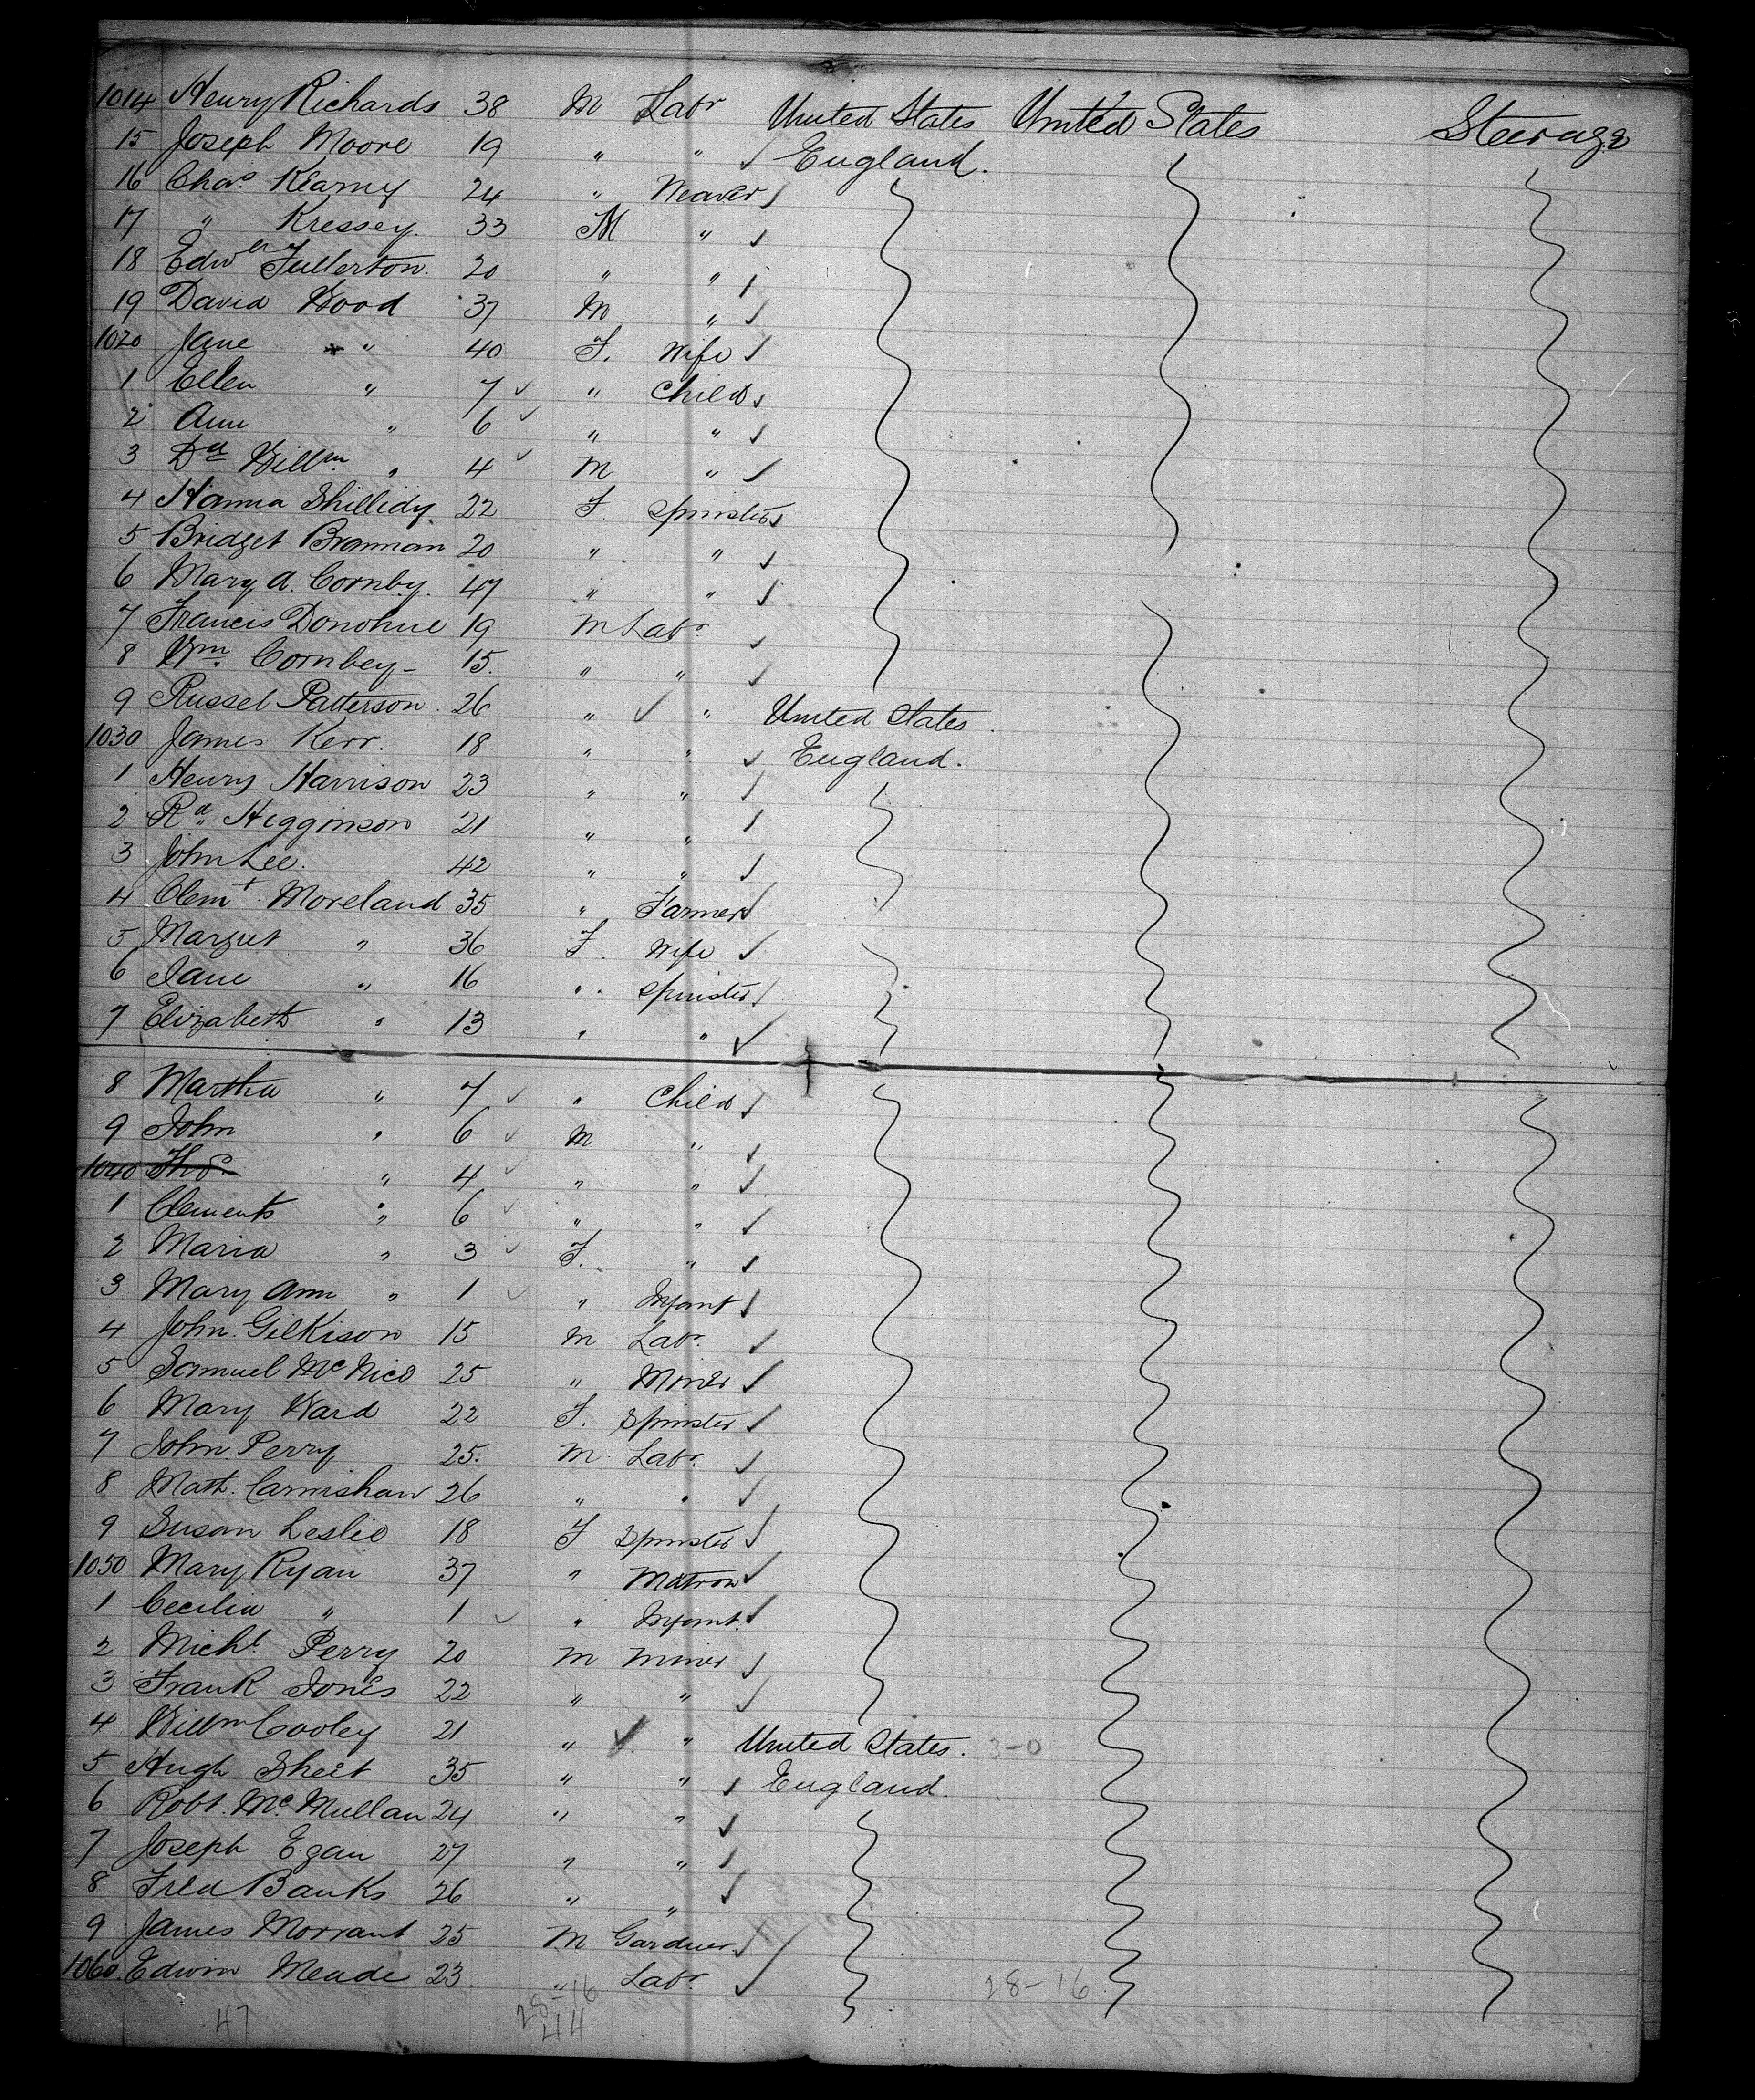 1014 Henry Richards 38 M Labr United States United States Steerage
15 Joseph Moore 19 " " England.
16 Chas. Kearny 24 " Weaver
17 " Kressey. 33 M "
18 Edwd Fullerton. 20 " "
19 David Wood 37 M "
1020 Jane " 40 F. Wife
1 Ellen " 7 " Child
2 Ann " 6 " "
3 Dd Willm " 4 M "
4 Hanna Shillidy 22 F. Spinster
5 Bridget Brannan 20 " "
6 Mary A. Cornby. 47 " "
7 Francis Donohue 19 M Labr
8 Wm. Cornbey 15. " "
9 Russel Patterson. 26 " " United States.
1030 James Kerr. 18 " " England.
1 Henry Harrison 23 " "
2 Rd Higginson 21 " "
3 John Lee. 42 " "
4 Clemt. Moreland 35 " Farmer
5 Margret " 36 F. Wife
6 Jane " 16 " Spinster
7 Elizabeth " 13 " "
8 Martha " 7 " Child
9 John " 6 M "
1040 Thos " 4 " "
1 Clements " 6 " "
2 Maria " 3 F. "
3 Mary Ann " 1 " Infant
4 John Gilkison 15 M Labr.
5 Samuel McNice 25 " Miner
6 Mary Ward 22 F. Spinster
7 John Perry 25. M. Labr.
8 Math. Carnishaw 26 " "
9 Susan Leslie 18 F Spinster
1050 Mary Ryan 37 " Matron
1 Cecilia " 1 " Infant.
2 Michl. Perry 20 M Miner
3 Frank Jones 22 " "
4 Willm Cooley 21 " " United States. 3-0
5 Hugh Sheet 35 " " England.
6 Robt. McMullan 24 " "
7 Joseph Egan 27 " "
8 Fred Banks 26 " "
9 James Morrant 25 M Gardner.
1060. Edwin Meade 23. " Labr.
47 28-16 28-16
44